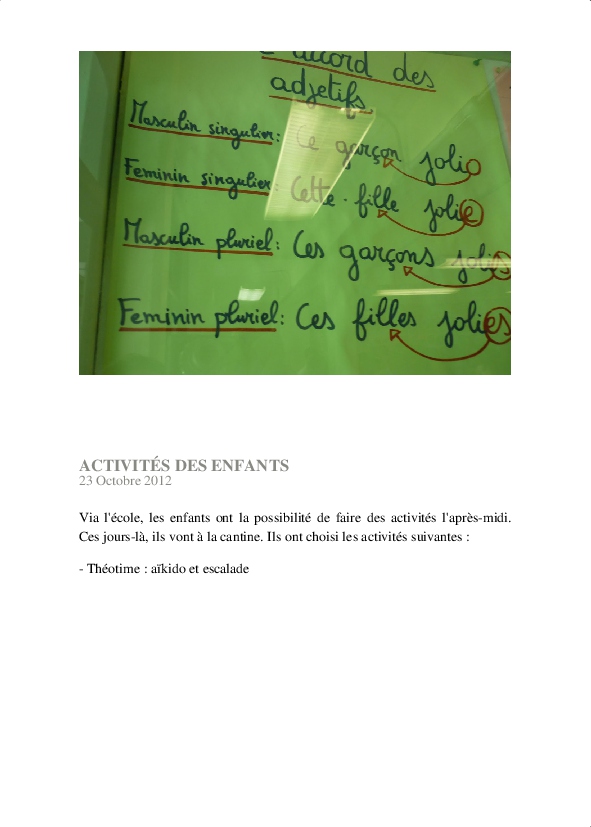 L'accord des
adjetifs
Masculin singulier: Ce garçon joli
Feminin singulier: Cette fille jolie
Masculin pluriel: Ces garçons jolis
Feminin pluriel: Ces filles jolies
ACTIVITÉS DES ENFANTS
23 Octobre 2012
Via l'école, les enfants ont la possibilité de faire des activités l'après-midi.
Ces jours-là, ils vont à la cantine. Ils ont choisi les activités suivantes :
- Théotime : aïkido et escalade